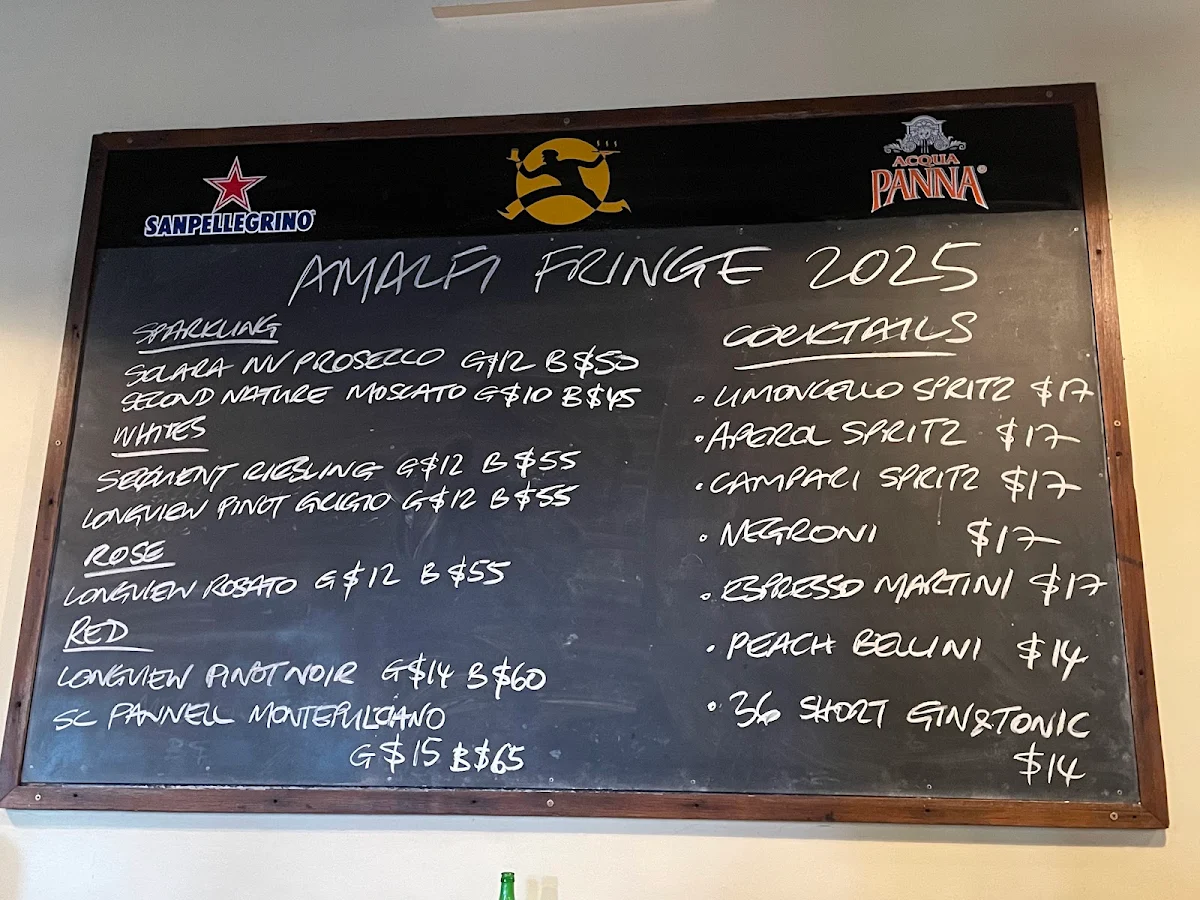 SANPELLEGRINO
ACQUA
PANNA
AMALFI FRINGE 2025
SPARKLING
SOLARA NV PROSECCO G$12 B $50
SECOND NATURE MOSCATO G$10 B$45
WHITES
SERQUENT RIESLING G$12 B $55
LONGVIEW PINOT GRIGIO G$12 B$55
ROSE
LONGVIEW ROSATO G $12 B $55
RED
LONGVIEW PINOT NOIR G$14 B$60
SC PANNELL MONTEPULCIANO
G$15 B$65
COCKTAILS
• LIMONCELLO SPRITZ $17
• APEROL SPRITZ $17
• CAMPARI SPRITZ $17
• NEGRONI $17
• ESPRESSO MARTINI $17
• PEACH BELLINI $14
• 36 SHORT GIN & TONIC
$14